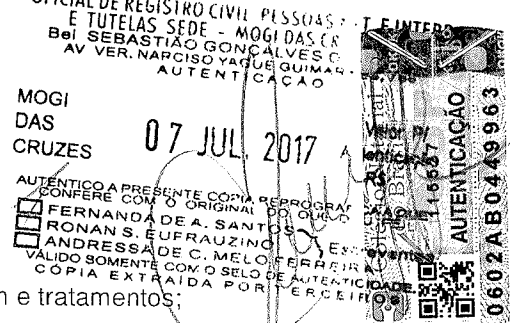 OFICIAL DE REGISTRO CIVIL PESSOAS
E TUTELAS SEDE - MOGI DAS CR
Bel SEBASTIÃO GONÇALVES
AV VER. NARCISO YAGUE GUIMAR
AUTENTICAÇÃO
MOGI
DAS
CRUZES
07 JUL. 2017
AUTENTICO A PRESENTE CÓPIA REPROGRAF
CONFERE COM O ORIGINAL DO QUE
FERNANDA DE A. SANTOS
RONAN S. EUFRAUZINO
ANDRESSA DE C. MELO FERREIRA
VÁLIDO SOMENTE COM O SELO DE AUTENTICIDADE
CÓPIA EXTRAÍDA POR TERCEIROS
e tratamentos;
Valor p/
115537
AUTENTICAÇÃO
0602AB0449963